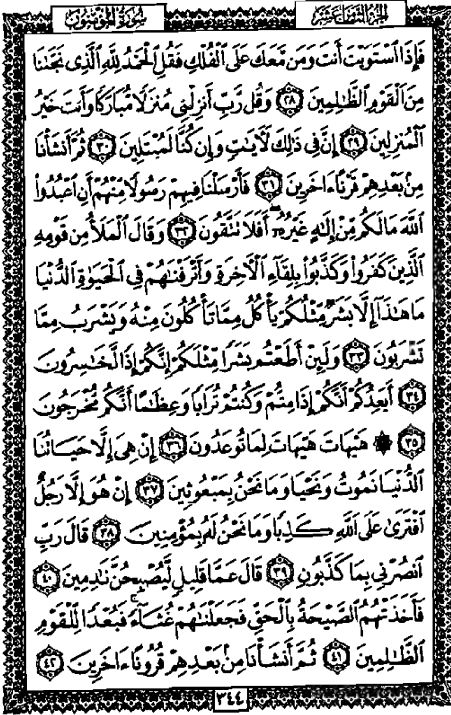 الجزء الثامن عشر
سورة المؤمنون
فَإِذَا ٱسْتَوَيْتَ أَنتَ وَمَن مَّعَكَ عَلَى ٱلْفُلْكِ فَقُلِ ٱلْحَمْدُ لِلَّهِ ٱلَّذِى نَجَّىٰنَا
مِنَ ٱلْقَوْمِ ٱلظَّٰلِمِينَ ٢٨ وَقُل رَّبِّ أَنزِلْنِى مُنزَلًا مُّبَارَكًا وَأَنتَ خَيْرُ
ٱلْمُنزِلِينَ ٢٩ إِنَّ فِى ذَٰلِكَ لَءَايَٰتٍ وَإِن كُنَّا لَمُبْتَلِينَ ٣٠ ثُمَّ أَنشَأْنَا
مِنۢ بَعْدِهِمْ قَرْنًا ءَاخَرِينَ ٣١ فَأَرْسَلْنَا فِيهِمْ رَسُولًا مِّنْهُمْ أَنِ ٱعْبُدُوا۟
ٱللَّهَ مَا لَكُم مِّنْ إِلَٰهٍ غَيْرُهُۥٓ أَفَلَا تَتَّقُونَ ٣٢ وَقَالَ ٱلْمَلَأُ مِن قَوْمِهِ
ٱلَّذِينَ كَفَرُوا۟ وَكَذَّبُوا۟ بِلِقَآءِ ٱلْءَاخِرَةِ وَأَتْرَفْنَٰهُمْ فِى ٱلْحَيَوٰةِ ٱلدُّنْيَا
مَا هَٰذَآ إِلَّا بَشَرٌ مِّثْلُكُمْ يَأْكُلُ مِمَّا تَأْكُلُونَ مِنْهُ وَيَشْرَبُ مِمَّا
تَشْرَبُونَ ٣٣ وَلَئِنْ أَطَعْتُم بَشَرًا مِّثْلَكُمْ إِنَّكُمْ إِذًا لَّخَٰسِرُونَ
٣٤ أَيَعِدُكُمْ أَنَّكُمْ إِذَا مِتُّمْ وَكُنتُمْ تُرَابًا وَعِظَٰمًا أَنَّكُم مُّخْرَجُونَ
٣٥ ۞ هَيْهَاتَ هَيْهَاتَ لِمَا تُوعَدُونَ ٣٦ إِنْ هِىَ إِلَّا حَيَاتُنَا
ٱلدُّنْيَا نَمُوتُ وَنَحْيَا وَمَا نَحْنُ بِمَبْعُوثِينَ ٣٧ إِنْ هُوَ إِلَّا رَجُلٌ
ٱفْتَرَىٰ عَلَى ٱللَّهِ كَذِبًا وَمَا نَحْنُ لَهُۥ بِمُؤْمِنِينَ ٣٨ قَالَ رَبِّ
ٱنصُرْنِى بِمَا كَذَّبُونِ ٣٩ قَالَ عَمَّا قَلِيلٍ لَّيُصْبِحُنَّ نَٰدِمِينَ ٤٠
فَأَخَذَتْهُمُ ٱلصَّيْحَةُ بِٱلْحَقِّ فَجَعَلْنَٰهُمْ غُثَآءً فَبُعْدًا لِّلْقَوْمِ
ٱلظَّٰلِمِينَ ٤١ ثُمَّ أَنشَأْنَا مِنۢ بَعْدِهِمْ قُرُونًا ءَاخَرِينَ ٤٢
٣٤٤